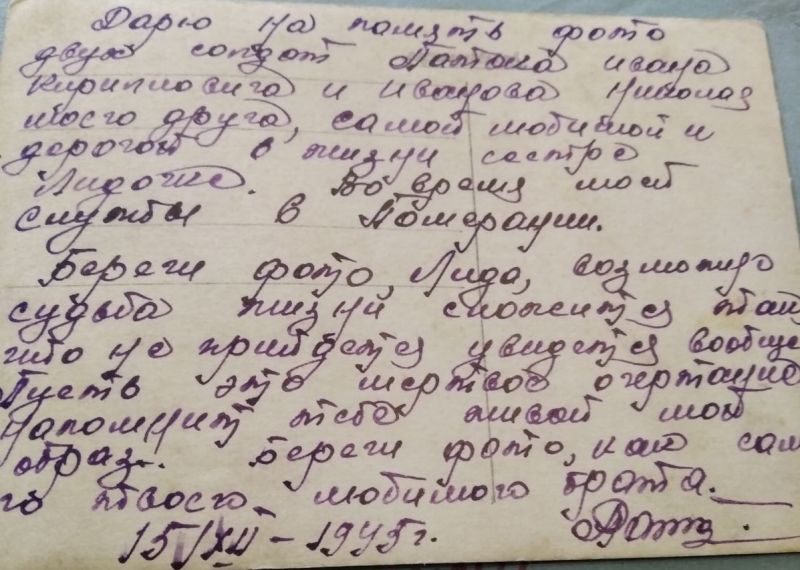 Дарю на память фото
двух солдат Патока Ивана
Кирилловича и Иванова Николая
моего друга, самой любимой и
дорогой в жизни сестре
Лидочке. Во время моей
службы в Померании.
Береги фото, Лида, возможно
судьба жизни сложится так
что не прийдется увидется вообще
Пусть это мертвое очертание
напомнит тебе живой мой
образ. Береги фото, как сам
го твоего любимого брата.
15/XII – 1945г.